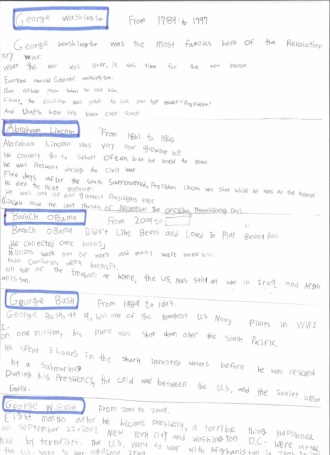 George Washington From 1789 to 1797.
George Washington was the most famous hero of the Revolution
ary war.
When the war was over, it was time for the new nation.
And that's how it's been ever since
Abraham Lincoln From 1861 to 1865
Abraham Lincoln was very poor growing up.
He couldn't go to school often but he loved to read.
He was President during the civil war.
Five days after the South Surrendered, President Lincoln was shot while he was at the theater.
He died the next morning.
He was one of our greatest Presidents ever.
Barack Obama From 2009 to
Barack Obama Didn't Like Beers and Loved To Play Basket Ball.
He collected comic books.
Millions were out of work and many were homeless.
on top of the troubles at home, the US was still at war in Iraq and Afgh
anistan.
George Bush From 1989 to 1993.
George Bush, at 19, was one of the youngest US Navy Pilots in WWI
I.
on one mission, his plane was shot down over the South Pacific.
He spent 3 hours in the shark infested waters before he was rescued
by a submarine.
During his Presidency, the cold war between the U.S. and the Soviet union
Ended.
George W. Bush From 2001 to 2009.
Eight months after he became President, a terrible thing happened
on September 2001. New York City and Washington D.C. were attac
ked by terrorists. The U.S. went to war with Afghanistan in 2001
the US went to war against Iraq